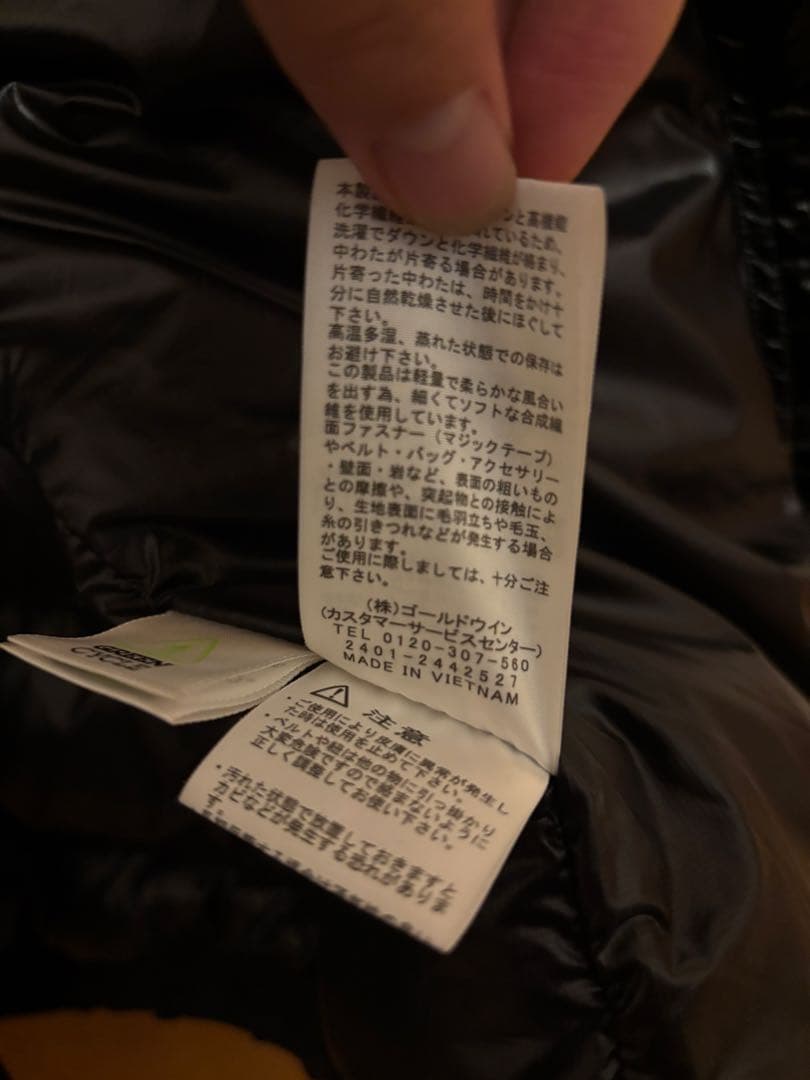 本製
ンと高機能
化学繊維
れているため、
洗濯でダウンと化学繊維が絡まり、
中わたが片寄る場合があります。
片寄った中わたは、時間をかけ十
分に自然乾燥させた後にほぐして
下さい。
高温多湿、蒸れた状態での保存は
お避け下さい。
この製品は軽量で柔らかな風合い
を出す為、細くてソフトな合成繊
維を使用しています。
面ファスナー(マジックテープ)
やベルト・バッグ・アクセサリー
・壁面・岩など、表面の粗いもの
との摩擦や、突起物との接触によ
り、生地表面に毛羽立ちや毛玉、
糸の引きつれなどが発生する場合
があります。
ご使用に際しましては、十分ご注
意下さい。
(株)ゴールドウイン
(カスタマーサービスセンター)
TEL 0120-307-560
2401-2442527
MADE IN VIETNAM
GREEN
CYCLE
注意
・ご使用により皮膚に異常が発生し
た時は使用を止めて下さい。
・ベルトや紐は他の物に引っ掛かり
大変危険ですので絡まないように
正しく調整してお使い下さい。
・汚れた状態で放置しておきますと
カビなどが発生する恐れがありま
す。